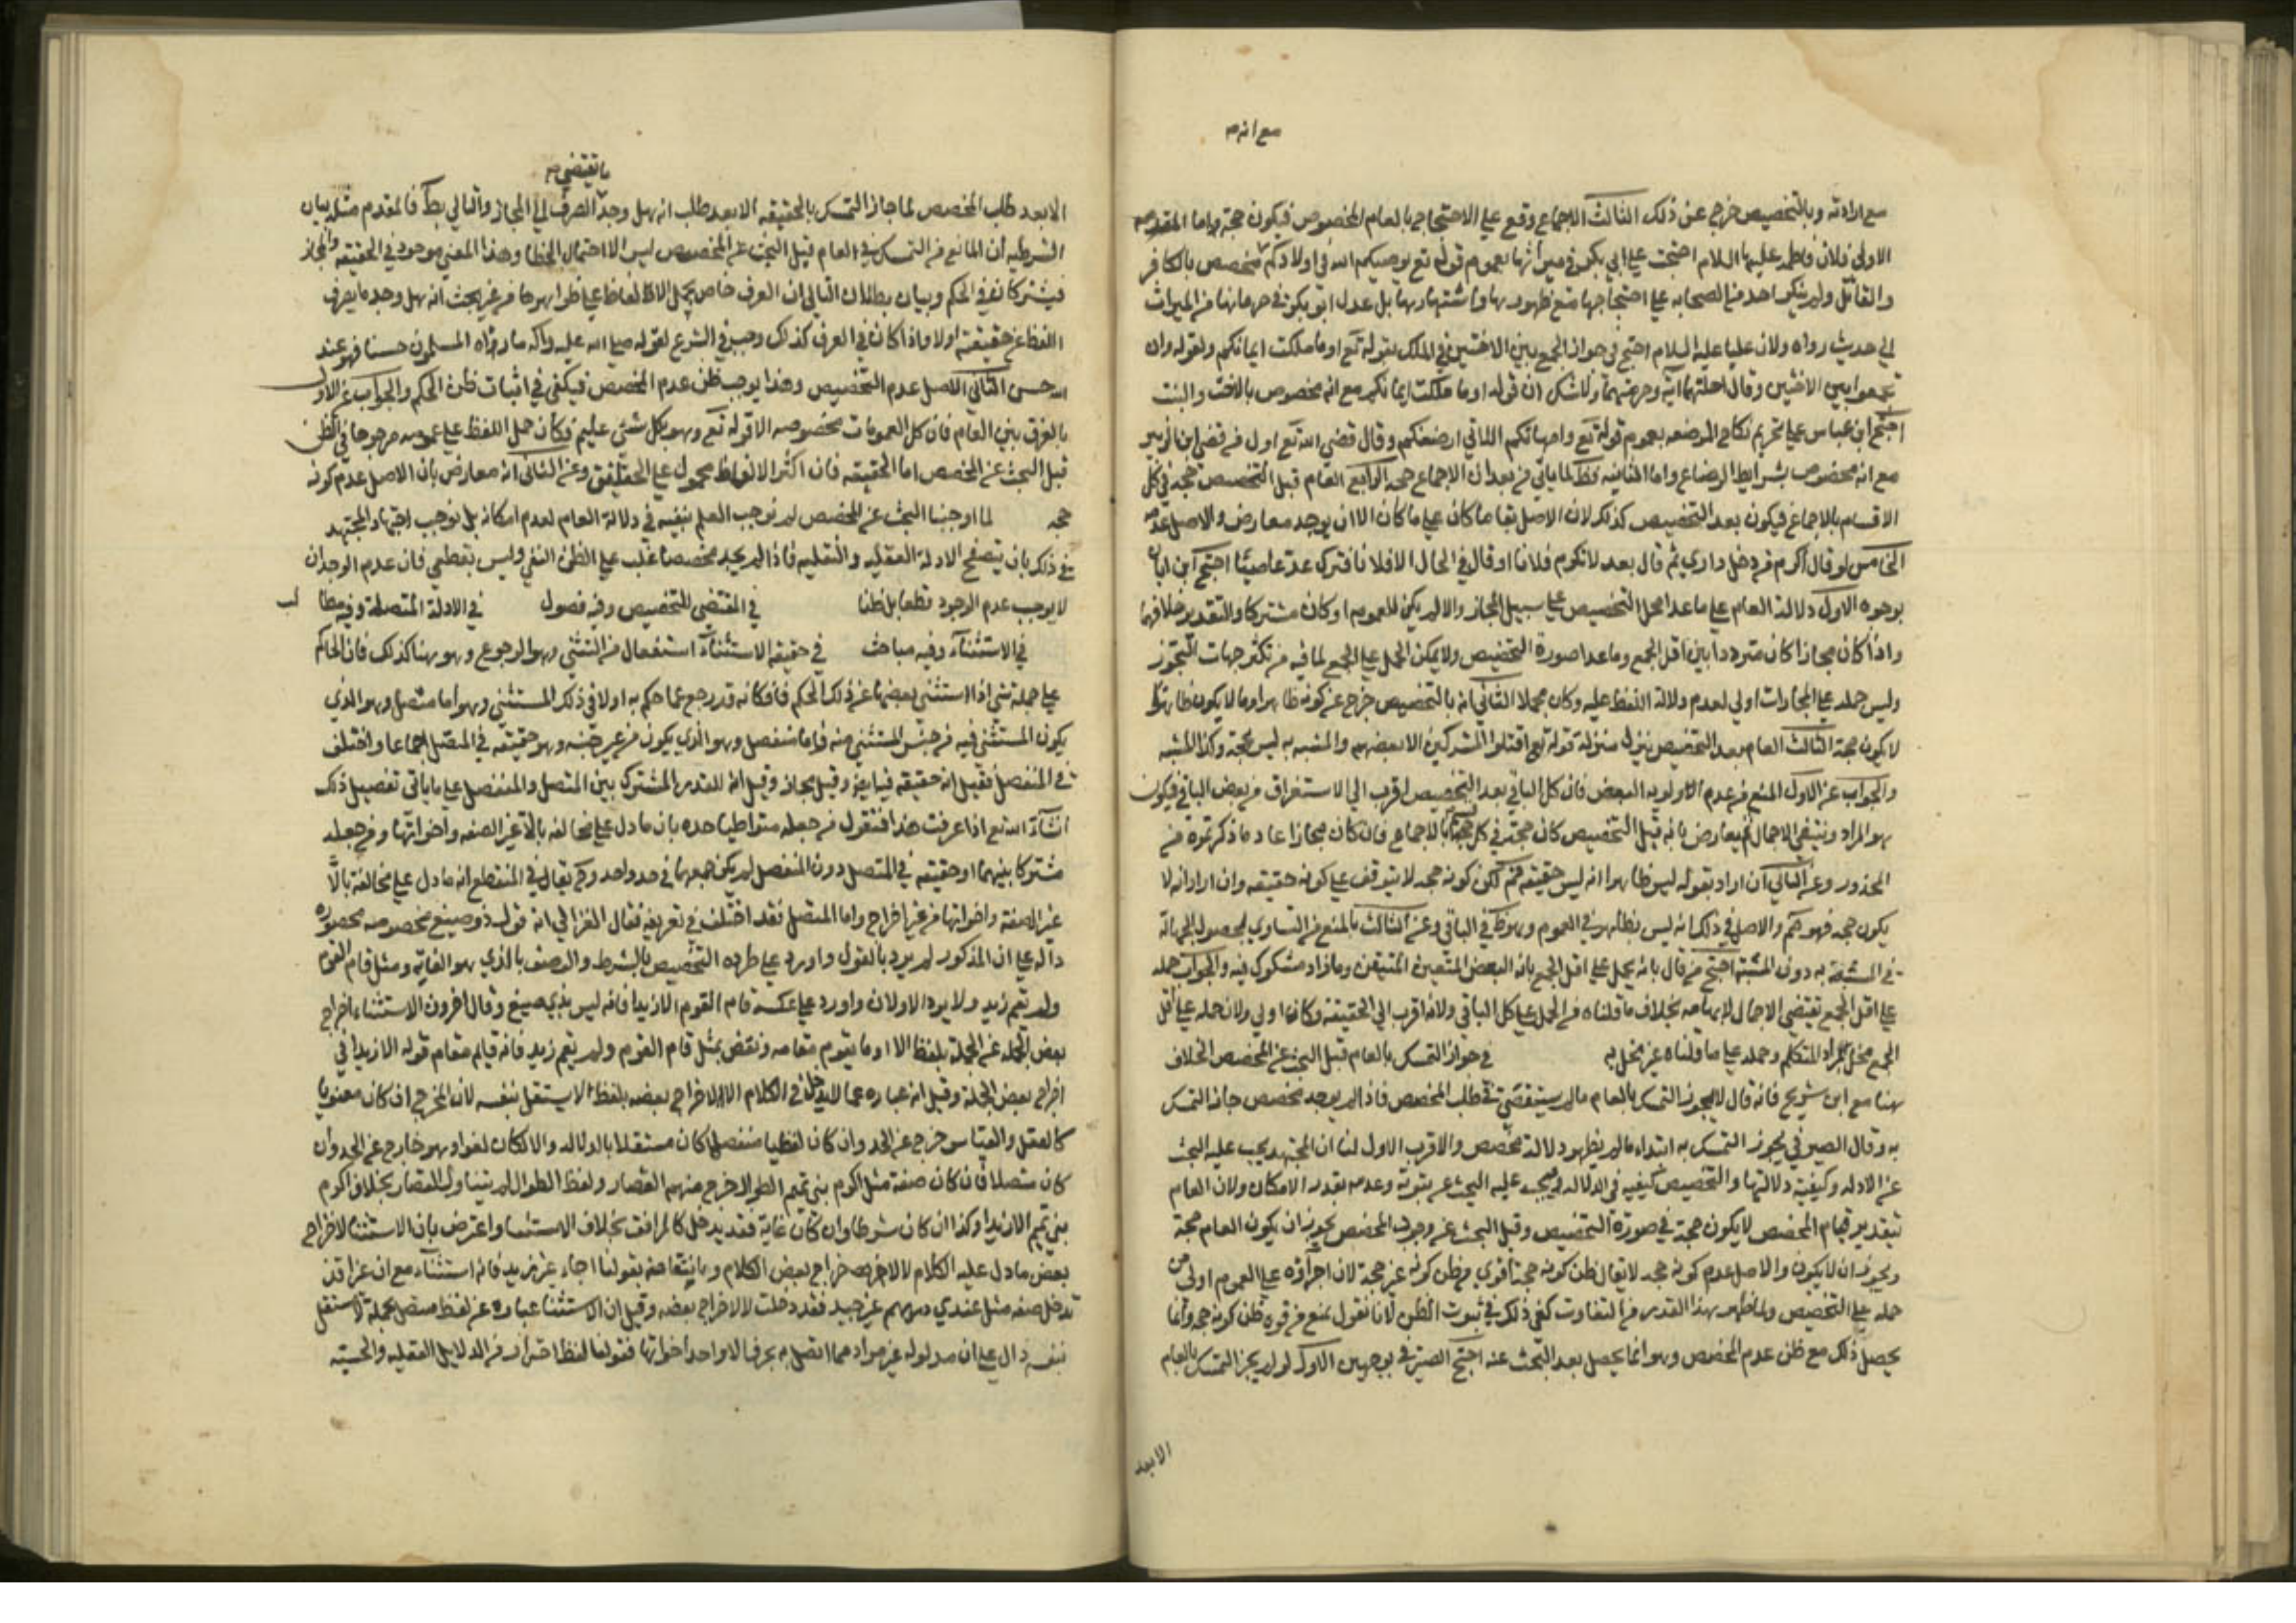 مع انه صح
مع ارادته وبالتخصيص خرج عن ذلك الثالث الاجماع وقع علي الاحتجاج بالعام المخصوص فيكون حجة واما المقدمه
الاولى فلان فاطمه عليها السلام احتجت علي ابي بكر في ميراثها بعموم قوله تع يوصيكم الله في اولادكم مخصص بالكافر
والقاتل ولم ينكر احد من الصحابه علي احتجاجها مع ظهورها واشتهارها بل عدل ابو بكر في حرمانها من الميراث
الي حديث رواه ولان عليا عليه السلام احتج في جواز الجمع بين الاختين في الملك بقوله تع او ما ملكت ايمانكم ولقوله وان
تجمعوا بين الاختين وقال احلتهما آية وحرمتهما ولا شك ان قوله او ما ملكت ايمانكم مع انه مخصوص بالاخت والبنت
احتج ابن عباس علي تحريم نكاح المرضعه بعموم قوله تع وامهاتكم اللاتي ارضعنكم وقال قضي الله تع اولى من قضى ابن الزبير
مع انه مخصوص بشرايط الرضاع واما الثانيه فظ لما ياتي من بعد ان الاجماع حجه الرابع العام قبل التخصيص حجة في كل
الاقسام بالاجماع فيكون بعد التخصيص كذلك لان الاصل بقا ما كان علي ما كان الا ان يوجد معارض والاصل عدمه
الخامس لو قال اكرم من دخل داري ثم قال بعد لا تكرم فلانا او قال في الحال الا فلانا فترك عد عاصيا احتج ابن ابان
بوجوه الاول دلالة العام علي ما عدا محل التخصيص علي سبيل المجاز والا لم يكن للعموم او كان مشتركا والتقدير خلافهما
واذا كان مجازا كان مترددا بين اقل الجمع وما عدا صورة التخصيص ولا يمكن الحمل علي الجميع لما فيه من تكثر جهات التجوز
وليس حمله علي المجازات اولي لعدم دلالة اللفظ عليه وكان مجملا الثاني انه بالتخصيص خرج عن كونه ظاهرا وما لا يكون ظاهرا
لا يكون حجة الثالث العام بعد التخصيص ينزل منزلة قوله تع اقتلوا المشركين الا بعضهم والمشبه به ليس حجة وكذا المشبه
والجواب عن الاول المنع من عدم الاولويه البعض فان كل الباقي بعد التخصيص اقرب الي الاستغراق من بعض الباقي فيكون
هو المراد وينتفي الاجمال ثم يعارض بانه قبل التخصيص كان حجة في كل بالاجماع فان كان مجازا عاد ما ذكرتموه من
المحذور وعن الثاني ان اراد بقوله ليس ظاهرا انه ليس حقيقه فمم لكن كونه حجه لا يتوقف علي كونه حقيقه وان اراد انه لا
يكون حجه فهو مم والاصل في ذلك انه ليس بظاهر في العموم وهو ظ في الباقي وعن الثالث بالمنع من التساوي لحصول الجهالة
في المشبه به دون المشبه احتج من قال بانه يحمل علي اقل الجمع بانه البعض المتعين المتيقن وما زاد مشكوك فيه والجواب حمله
علي اقل الجمع يقتضي الاجمال لابهامه بخلاف ما قلناه من الحمل علي كل الباقي ولانه اقرب الي الحقيقة وكان اولي ولان حمله علي اقل
الجمع مخل بمراد المتكلم وحمله علي ما قلناه غير مخل به في جواز التمسك بالعام قبل البحث عن المخصص الخلاف
هنا مع ابن شريح فانه قال لا يجوز التمسك بالعام ما لم يستقصي في طلب المخصص فاذا لم يوجد مخصص جاز التمسك
به وقال الصيرفي يجوز التمسك به ابتداء ما لم يظهر دلالة مخصص والاقرب الاول لنا ان المجتهد يجب عليه البحث
عن الادله وكيفية دلالتها والتخصيص كيفيه في الدلاله فيجب عليه البحث عن ثبوته وعدمه بقدر الامكان ولان العام
بتقدير قيام المخصص لا يكون حجة في صورة التخصيص وقبل البحث عن وجود المخصص يجوز ان يكون العام حجة
ويجوز ان لا يكون والاصل عدم كونه حجه لا يقال ظن كونه حجة اقوي من ظن كونه غير حجة لان اجراؤه علي العموم اولى من
حمله علي التخصيص ولما ظهر هذا القدر من التفاوت كفي ذلك في ثبوت الظن لانا نقول نمنع من قوة ظن كونه حجه وانما
يحصل ذلك مع ظن عدم المخصص وهو انما يحصل بعد البحث عنه احتج الصيرفي بوجهين الاول لو لم يجز التمسك بالعام
الابعد
ما يقتضي صح
الا بعد طلب المخصص لما جاز التمسك بالحقيقه الا بعد طلب انه هل وجد الصرف الي المجاز والتالي بط فالمقدم مثله بيان
الشرطيه ان المانع من التمسك في العام قبل البحث عن المخصص ليس الا احتمال الخطا وهذا المعني موجود في الحقيقه والمجاز
فيشتركان في الحكم وبيان بطلان التالي ان العرف خاص بحمل الالفاظ علي ظواهرها من غير بحث انه هل وجد ما يصرف
اللفظ عن حقيقته اولا واذا كان في العرف كذلك وجب في الشرع لقوله صلي الله عليه وآله ما رآه المسلمون حسنا فهو عند
الله حسن الثاني الاصل عدم التخصيص وهذا يوجب ظن عدم المخصص فيكفي في اثبات ظن الحكم والجواب عن الاول
بالفرق بين العام فان كل العمومات مخصوصه الا قوله تع وهو بكل شيئ عليم فكان حمل اللفظ علي عمومه مرجوحا في الظن
قبل البحث عن المخصص اما الحقيقه فان اكثر الالفاظ محمول علي الحقايق وعن الثاني انه معارض بان الاصل عدم كونه
حجه لما اوجبنا البحث عن المخصص لم نوجب العلم بنفيه في دلالة العام لعدم امكانه بل نوجب اجتهاد المجتهد
في ذلك بان يتصفح الادلة العقليه والنقليه فاذا لم يجد مخصصا غلب علي الظن النفي وليس بقطعي فان عدم الوجدان
لا يوجب عدم الوجود قطعا بل ظنا في المقتضي للتخصيص وفيه فصول في الادلة المتصلة وفيه مطا لب
في الاستثناء وفيه مباحث في حقيقة الاستثناء استفعال من الثني وهو الرجوع وهو هنا كذلك فان الحاكم
علي جملة شئ اذا استثنى بعضها عن ذلك الحكم فانه كانه قد رجع عما حكم به اولا في ذلك المستثني وهو اما متصل وهو الذي
يكون المستثني فيه من جنس المستثني منه واما منفصل وهو الذي يكون من غير جنسه وهو حقيقه في المتصل اجماعا واختلف
في المنفصل فقيل انه حقيقه فيه ايض وقيل مجاز وقيل انه للقدر المشترك بين المتصل والمنفصل علي ما ياتي تفصيل ذلك
انشاء الله تع اذا عرفت هذا فنقول من جعله متواطيا حده بان ما دل علي مخالفه بالا غير الصفه واخواتها ومن جعله
مشتركا بينهما او حقيقه في المتصل دون المنفصل لم يكن جمعهما في حد واحد وح يقال في المنقطع انه ما دل علي مخالفة بالا
غير الصفة واخواتها من غير اخراج واما المتصل فقد اختلف في تعريفه فقال الغزالي انه قول ذو صيغ مخصوصه محصوره
داله علي ان المذكور لم يرد بالقول واورد علي طرده التخصيص بالشرط والوصف بالذي هو الغايه ومثل قام القوم
ولم يقم زيد ولا يرد الاولان واورد علي عكسه قام القوم الا زيدا فانه ليس بذي صيغ وقال اخرون الاستثناء اخراج
بعض الجمله عن الجملة بلفظ الا او ما يقوم مقامه ونقض بمثل قام القوم ولم يقم زيد فانه قايم مقام قوله الا زيدا في
اخراج بعض الجملة وقيل انه عباره عما لا يدخل في الكلام الا لاخراج بعضه بلفظ لا يستقل بنفسه لان المخرج ان كان معنويا
كالعقل والقياس خرج عن الحد وان كان لفظيا منفصلا كان مستقلا بالدلاله والا لكان لغوا وهو خارج عن الحد وان
كان متصلا فان كان صفة مثل اكرم بني تميم الطوال خرج منهم القصار ولفظ الطوال لم يتناول القصار بخلاف اكرم
بني تميم الا زيدا وكذا ان كان شرطا وان كان غاية فقد يدخل كالمرافق بخلاف الاستثناء واعترض بان الاستثناء لاخراج
بعض ما دل عليه الكلام لا لاخراج بعض الكلام وبانتقاضه بقولنا جاء غير زيد فانه استثناء مع ان غير قد
تدخل صفه مثل عندي درهم غير جيد فقد دخلت لا لاخراج بعضه وقيل ان الاستثناء عباره عن لفظ متصل بجملة لا يستقل
بنفسه دال علي ان مدلوله غير مراد مما اتصل به بحرف الا واحد اخواتها فقولنا لفظا احتراز من الدلايل العقليه والحسيه